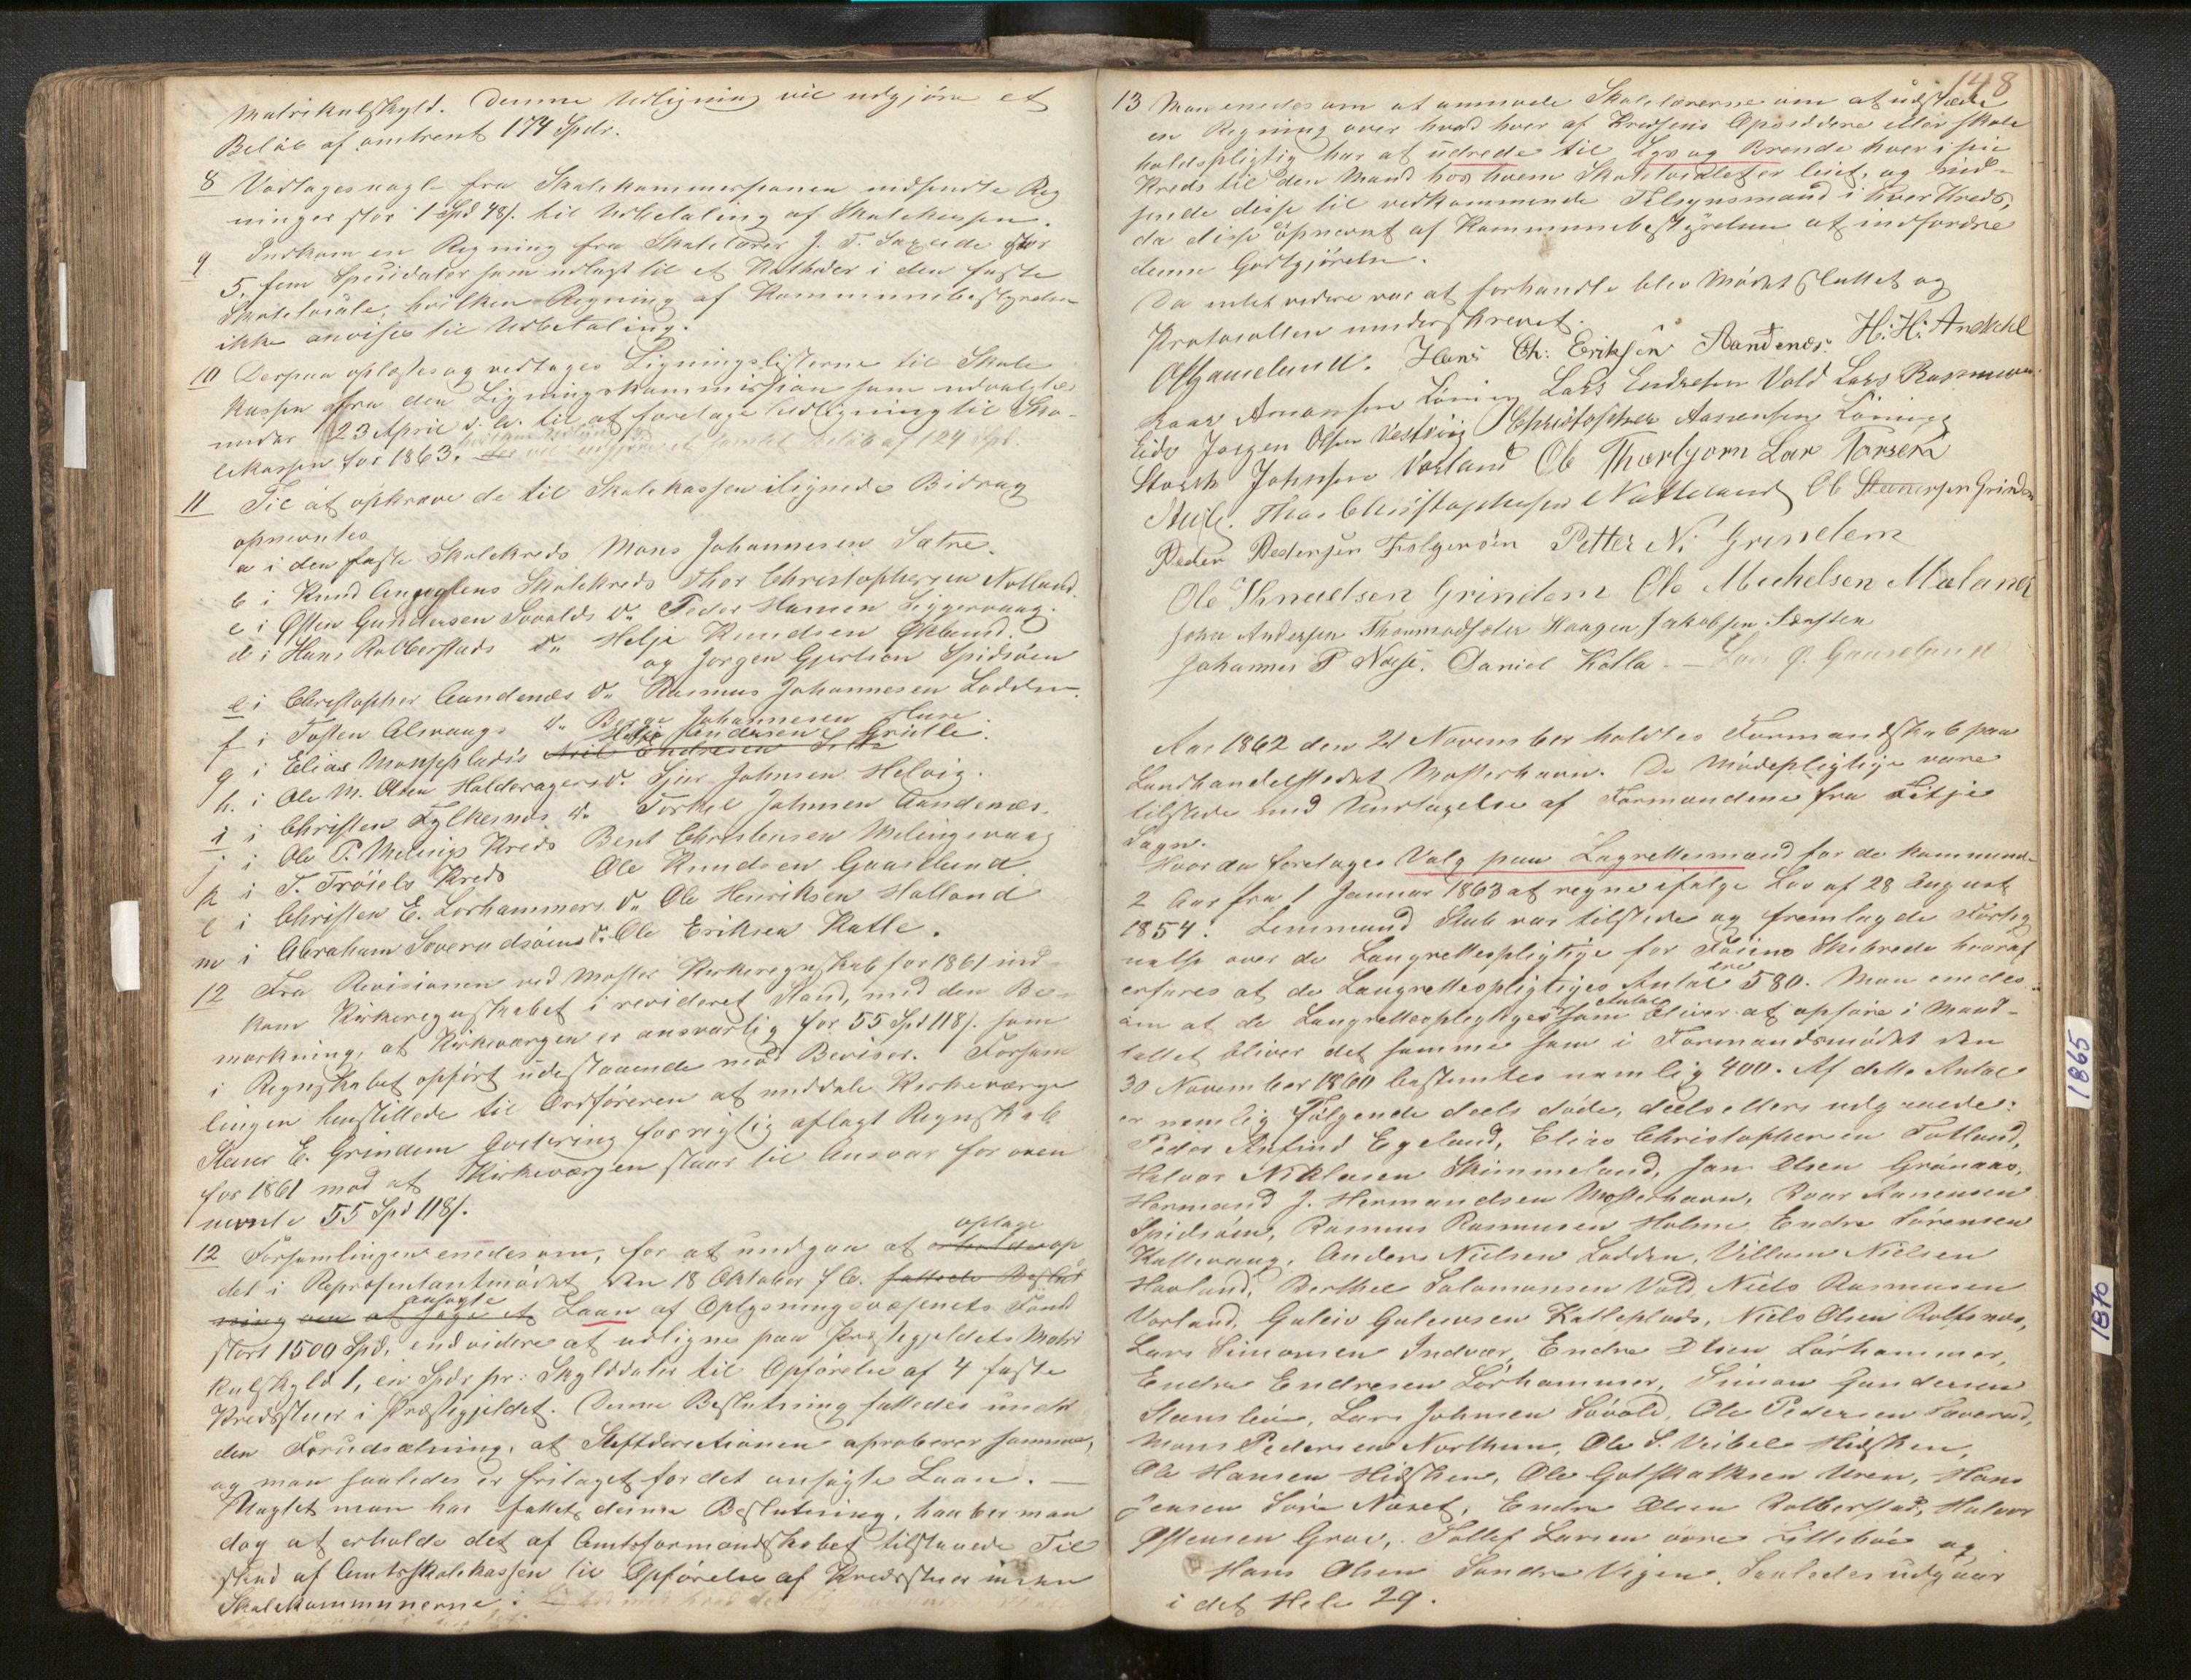 Matrikulskyld. Denne Udligning vil udgjøre et
Beløb af omtrent 174 Spdr.
8 Vedtages nogle fra Skolekommissionen indsendte Reg
ninger stor 1 Spd 48 s. til Udbetaling af Skolekassen.
9 Indkom en Regning fra Skolelærer J. T. stor
5, fem Speciedaler som udlagt til et Katheder i den faste
Skolelocale, hvilken Regning af Kommunebestyrelsen
ikke anvises til Udbetaling.
10 Derpaa oplæstes og vedtages Ligningslisterne til Skole
kassen fra den Ligningskommission som udvalgtes
under 23 April d. A. til at foretage Udligning til Sko-
lekassen for 1863.
11 Til at opkræve de til Skolekassen ilignede Bidrag
opnevntes
a i den faste Skolekreds Mons Johannesen Sætre.
b i Knud Skolekreds Thor Christophersen Notland
c i Østen Gundersen Sovolds do Peder Hansen Siggervaag.
d i Hans Rolberstads do Helje Knudsen Økland.
og Jørgen Gjertson Spidsøen
e i Christopher Aandenæs do Rasmus Johannesen Lodden.
f i Tosten Alsvaags do Børge Johannesen Huse.
Helje Andersen Grutle.
g i Elias Monsepladis Endresen
h. i Ole M. Olsen Halderagers do Sjur Johnsen Helvig.
i i Christen Fylkesnes do Torkel Johnsen Aandenæs.
j i Ole P. Melings Kreds Bent Christensen Melingsvaag
k i T. Trøiels Kreds Ole Knudsen Gaaseland.
l i Christen E. Lorhammers do Ole Henriksen Halland
m i Abraham do Ole Eriksen Katle.
12 Fra Revisionen ved Moster Kirkeregnskab for 1861 ind-
kom Kirkeregnskabet i revideret Stand, med den Be-
mærkning, at Kirkeværgen er ansvarlig for 55 Spd 118 s. som
i Regnskabet opført udestaaende mod Beviser. Forsam
lingen henstillede til Ordføreren at meddele Kirkeværge
E. Grindem Qvitering for rigtig aflagt Regnskab
for 1861 mod at Kirkeværgen staar til Ansvar for oven
nævnte 55 Spd 118 s.
12 Forsamlingen enedes om, for at undgaa at optage
det i Repræsentantmødet den 18 Oktober f A. fattede Beslut
ning om at søge et ansøgte Laan af Oplysningsvæsenets Fond
stort 1500 Spd, endvidere at udligne paa Præstegjeldets Matri
kulskyld 1, en Spdr pr: Skylddaler til Opførelse af 4 faste
Kredsstuer i Præstegjeldet. Denne Beslutning fattedes under
den Forudsætning, at Stiftdirectionen aproberer samme,
og man saaledes er fritaget for det ansøgte Laan. —
Uagtet man har fattet denne Beslutning, haaber man
dog at erholde det af Amtsformandskabet tilstaaede Til
skud af Amtsskolekassen til Opførelse af Kredsstuer inden
Skolekommunerne.
148
13 Man enedes om at anmode Skolelærerne om at udstæde
en Regning over hvad hver af Kredsens Opsiddere eller skole
holdspligtig har at udrede til Lys og Brænde hver i sin
Kreds til den Mand hos hvem Skolelocalet er leiet, og ind-
sende disse til vedkommende Tilsynsmænd i hver Kreds,
da disse opnevnt af Kommunebestyrelsen at indfordre
denne Godtgjørelse.
Da intet videre var at forhandle blev Mødet sluttet og
Protocollen underskrevet.
O Gaaseland. Hans Ch: Eriksen Aandenæs. H: H:
Roar Amonsen Lars Endresen Vold Lars Rasmussen
Eide Jørgen Olsen Vestvig Christopher Aanensen
Johnsen Vorland Ole Thorbjørn Lar Torsen
Thor Christophersen Notteland Ol Stenersen Grindem
Peder Pedersen Folgerøen Petter N: Grindem
Ole Knudtsen Grindem Ole Mechelsen Mæland
John Andersen Thormodsæter Haagen Jakobsen
Johannes P Nese. Daniel Katla — Lars O. Gaaseland
Aar 1862 den 21 November holdtes Formandskab paa
Landhandelstedet Mosterhavn. De Mødepligtige vare
tilstede med Undtagelse af Formændene fra Fitje
Sogn.
Hvorda foretages Valg paa Lagrettesmænd for de kommende
2 Aar fra 1 Januar 1863 at regne ifølge Lov af 28 August
1854. Lensmand Stub var tilstede og fremlagde Forteg
nelse over de Laugrettespligtige for Føiens Skibrede hvoraf
erfares at de Laugrettespligtiges Antal ere 580. Man enedes
om at de Laugrettespligtiges Antal som bliver at opføre i Mand-
tallet bliver det samme som i Formandsmødet den
30 November 1860 bestemtes nemlig 400. Af dette Antal
er nemlig Følgende deels døde, deels ellers udgaaede:
Peder Anfind Egeland, Elias Christophersen Totland,
Halvor Niklasen Skimmeland, Jan Olsen Grønaas,
Hermand J. Hermandsen Mosterhavn, Roar Aanensen
Spidsøen, Rasmus Rasmusen Holme, Endre Sørensen
Kallevaag, Anders Nielsen Lodden, Villum Nielsen
Hovland, Berthel Salamonsen Vold, Niels Rasmusen
Vorland, Guleiv Gulevsen Katleplads, Niels Olsen Rolfsnes,
Lars Simonsen Indvær, Endre Olsen Lorhammer,
Endre Endresen Lorhammer, Simon Gundersen
Lars Johnsen Sovold, Ole Pedersen
Mons Pedersen Northun, Ole S. Hidsken,
Ole Hansen Hidsken, Ole Gotskalksen Uren, Hans
Jensen Søre Næset, Endre Olsen Rolberstad, Halvor
Østensen Grov, Tollef Larsen øvre Littlebø og
Hans Olsen Søndre Vigen. Saaledes udgaar
i det Hele 29.
1865
1870